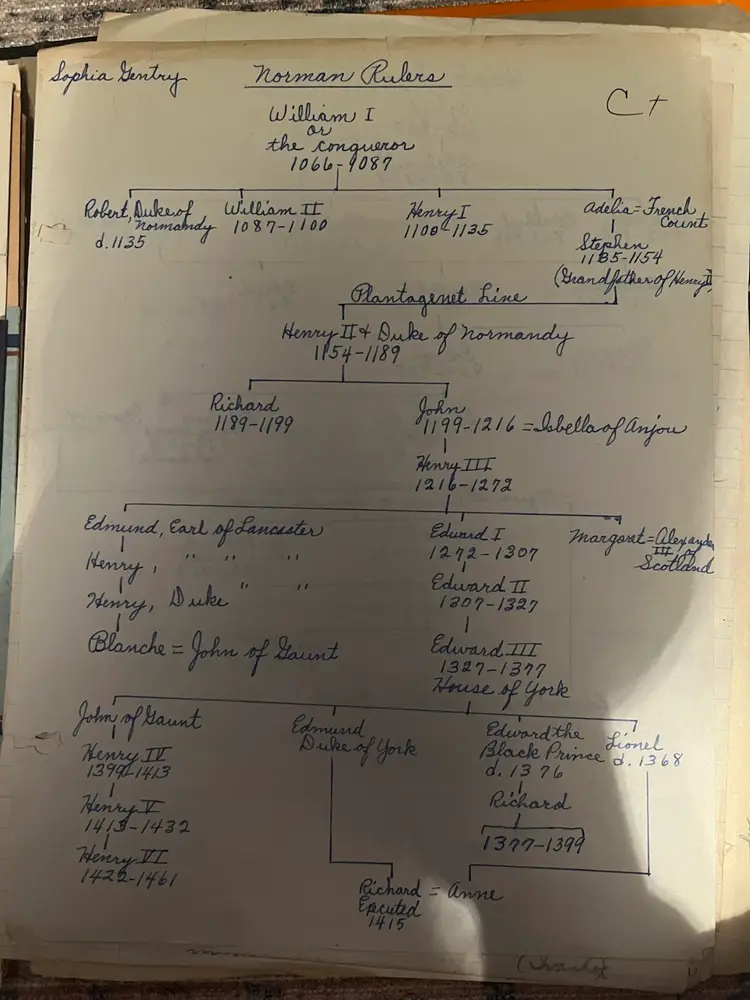 Sophia Gentry
Norman Rulers
C+
William I
or
the conqueror
1066-1087
Robert, Duke of Normandy
d. 1135
William II
1087-1100
Henry I
1100-1135
Adelia = French Count
Stephen
1135-1154
(Grandfather of Henry II)
Plantagenet Line
Henry II & Duke of Normandy
1154-1189
Richard
1189-1199
John
1199-1216 = Isbella of Anjou
Henry III
1216-1272
Edmund, Earl of Lancaster
Henry, " " "
Henry, Duke " "
Blanche = John of Gaunt
Edward I
1272-1307
Edward II
1307-1327
Edward III
1327-1377
House of York
Margaret = Alexander
III of
Scotland
John of Gaunt
Henry IV
1399-1413
Henry V
1413-1432
Henry VI
1422-1461
Edmund
Duke of York
Edward the
Black Prince
d. 1376
Richard
1377-1399
Lionel
d. 1368
Richard = Anne
Executed
1415